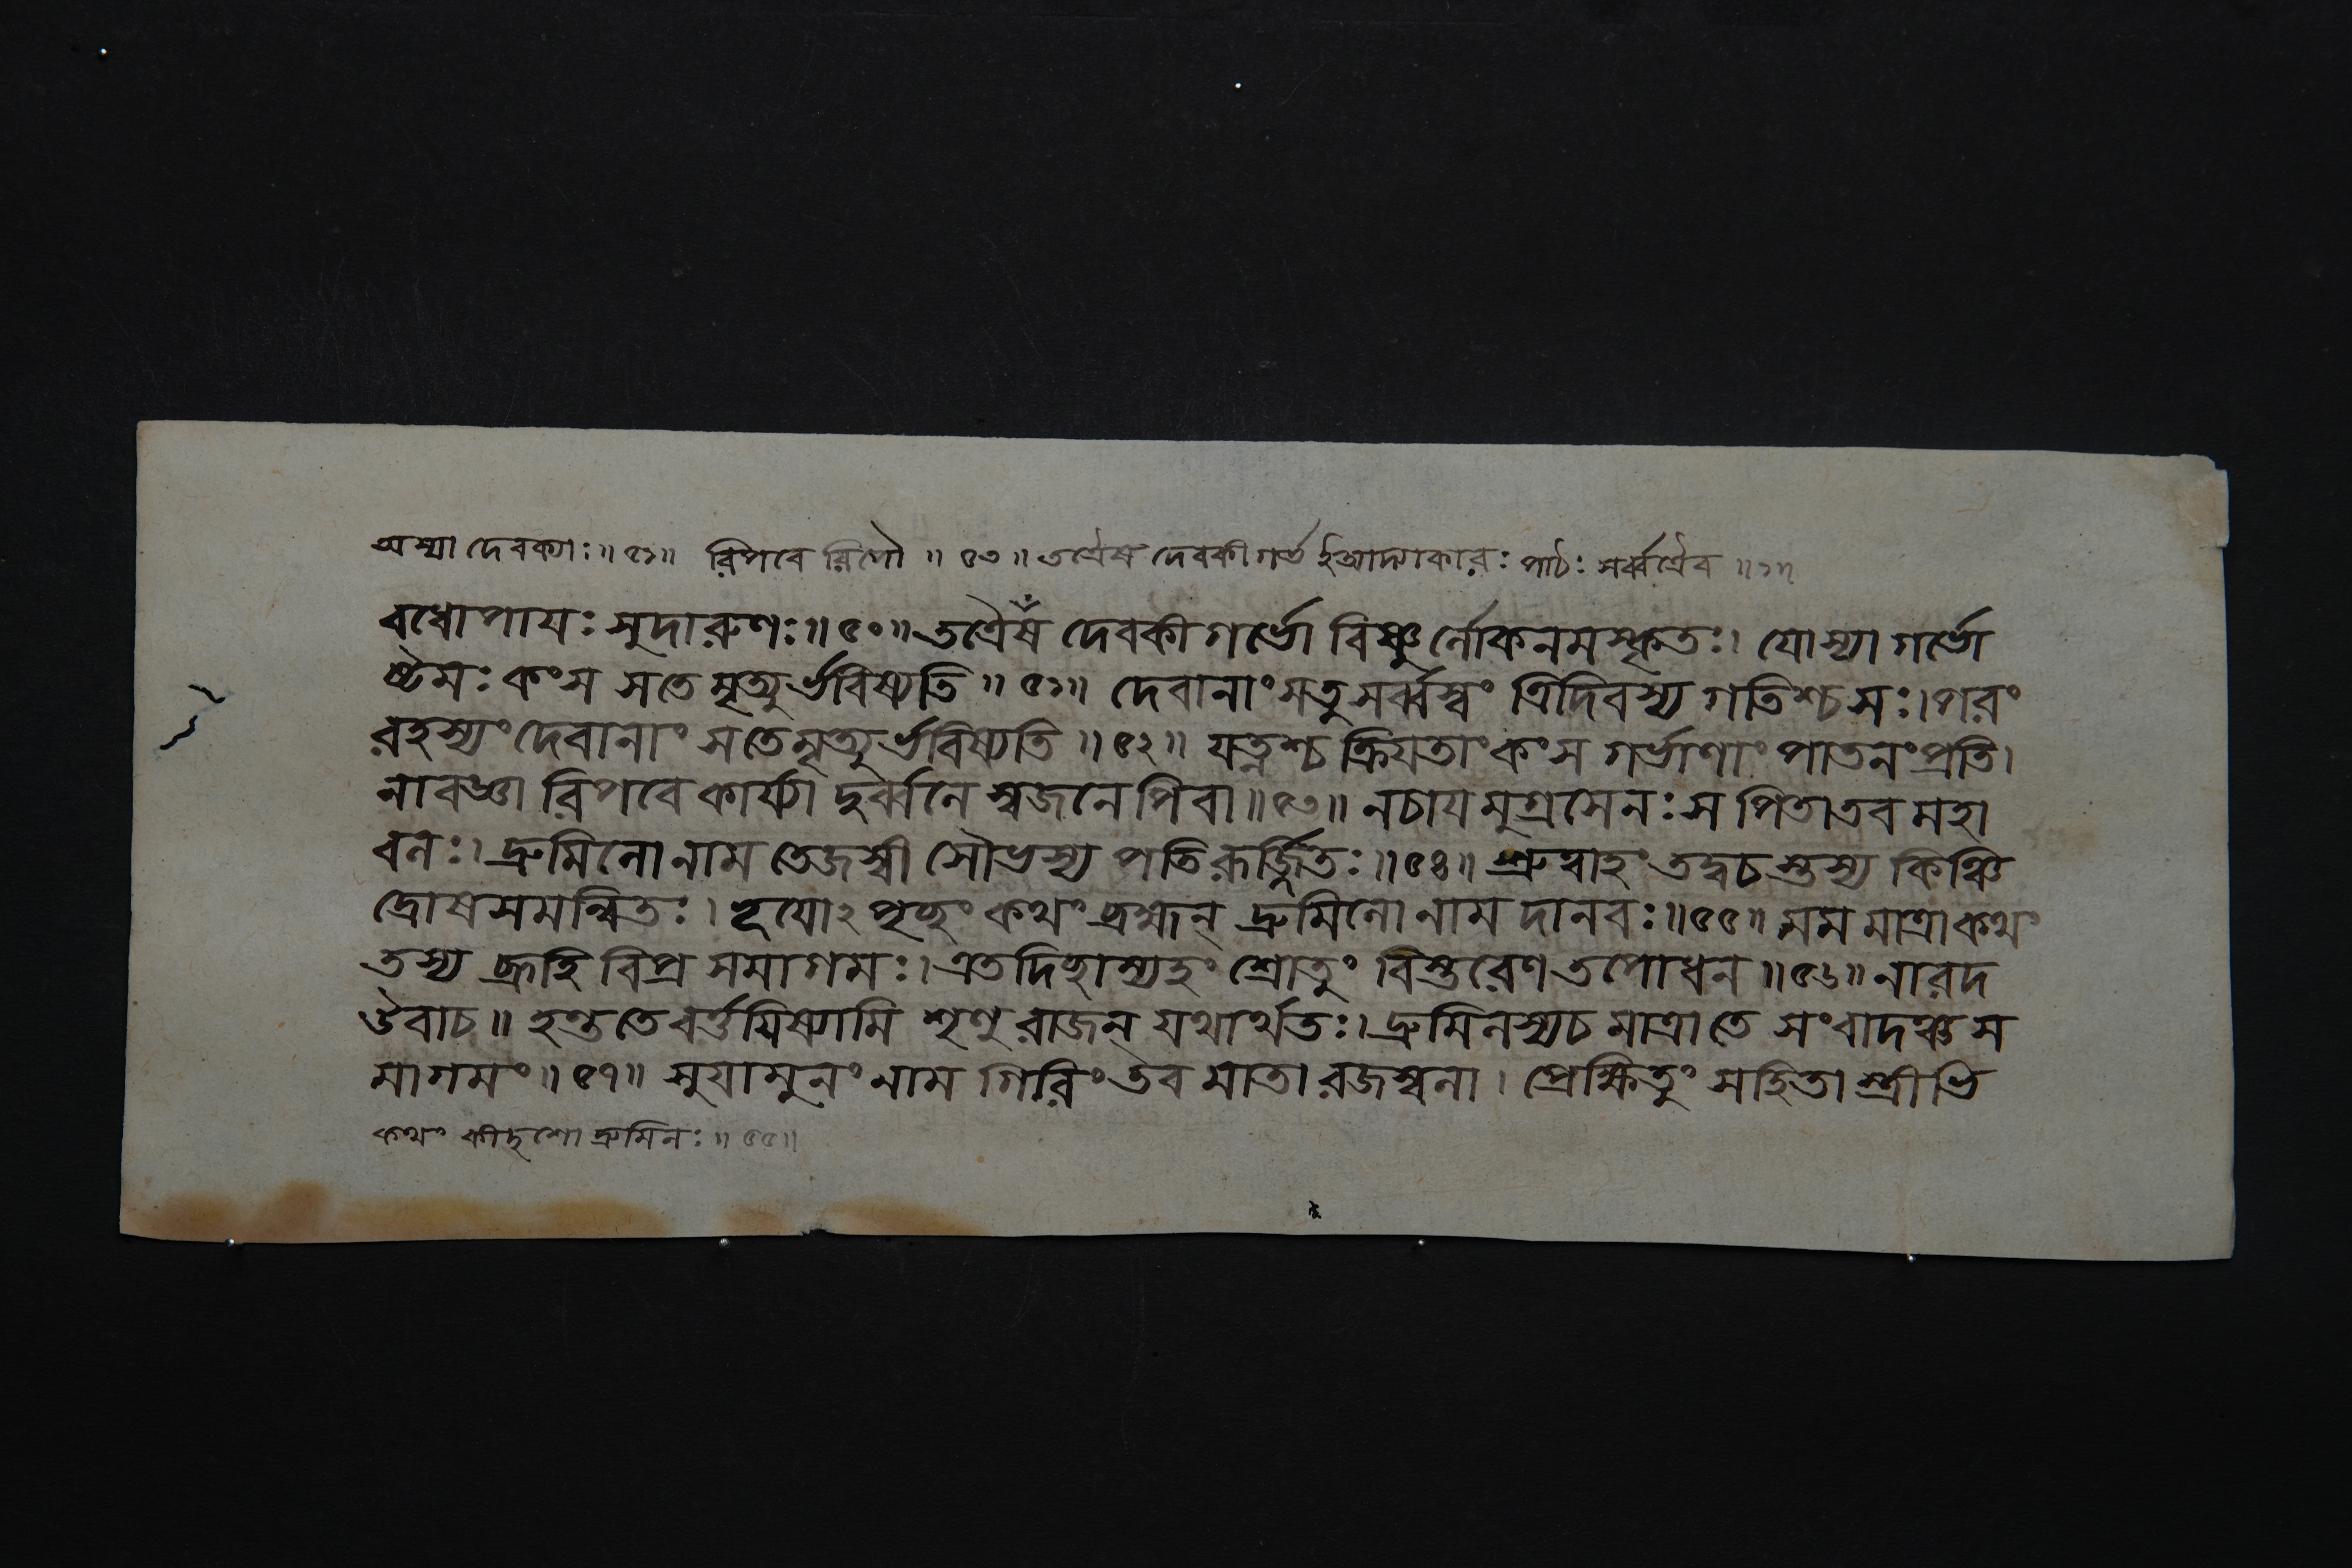 অস্যা দেবক্যাঃ॥ ৫১॥ রিপবে রিপৌ ॥ ৫৩ ॥ তত্রৈষ দেবকীগর্ভ ইত্যাদ্যাকারঃ পাঠঃ সর্ব্বত্রৈব ॥১॥
বধোপাযঃ সুদারুণঃ॥৫০॥ তত্রৈষঁ দেবকীগর্ভো বিষ্ণুর্লোকনমস্কৃতঃ। যোস্যা গর্ভো
ষ্টমঃ কংস সতে মৃত্যুর্ভবিষ্যতি ॥ ৫১॥ দেবানাং সতু সর্ব্বস্বং ত্রিদিবস্য গতিশ্চ সঃ। পরং
রহস্যং দেবানাং সতে মৃত্যুর্ভবিষ্যতি ॥৫২॥ যত্নশ্চ ক্রিযতাং কংস গর্ভাণাং পাতনং প্রতি।
নাবজ্ঞা রিপবে কার্য্যা দুর্ব্বলে স্বজনে পিবা ॥৫৩॥ নচাযমুগ্রসেনঃ স পিতা তব মহা
বলঃ। দ্রুমিলো নাম তেজস্বী সৌভস্য পতিরূর্জ্জিতঃ॥৫৪॥ শ্রুত্বাহং তদ্বচস্তস্য কিঞ্চি
দ্রোষসমন্বিতঃ। ভূযোঽপৃচ্ছং কথং ব্রহ্মন্ দ্রুমিলো নাম দানবঃ॥৫৫॥ মম মাত্রা কথং
তস্য ব্রূহি বিপ্র সমাগমঃ। এতদিচ্ছাম্যহং শ্রোতুং বিস্তরেণ তপোধন॥৫৬॥ নারদ
উবাচ॥ হন্ত তে বর্ত্তযিষ্যামি শৃণু রাজন্ যথার্থতঃ। দ্রুমিলস্যচ মাত্রা তে সংবাদঞ্চ স
মাগমং॥ ৫৭॥ সুযামুনং নাম গিরিং তব মাতা রজস্বলা। প্রেক্ষিতুং সহিতা স্ত্রীভি
কথং কীদৃশো দ্রুমিলঃ॥ ৫৫॥